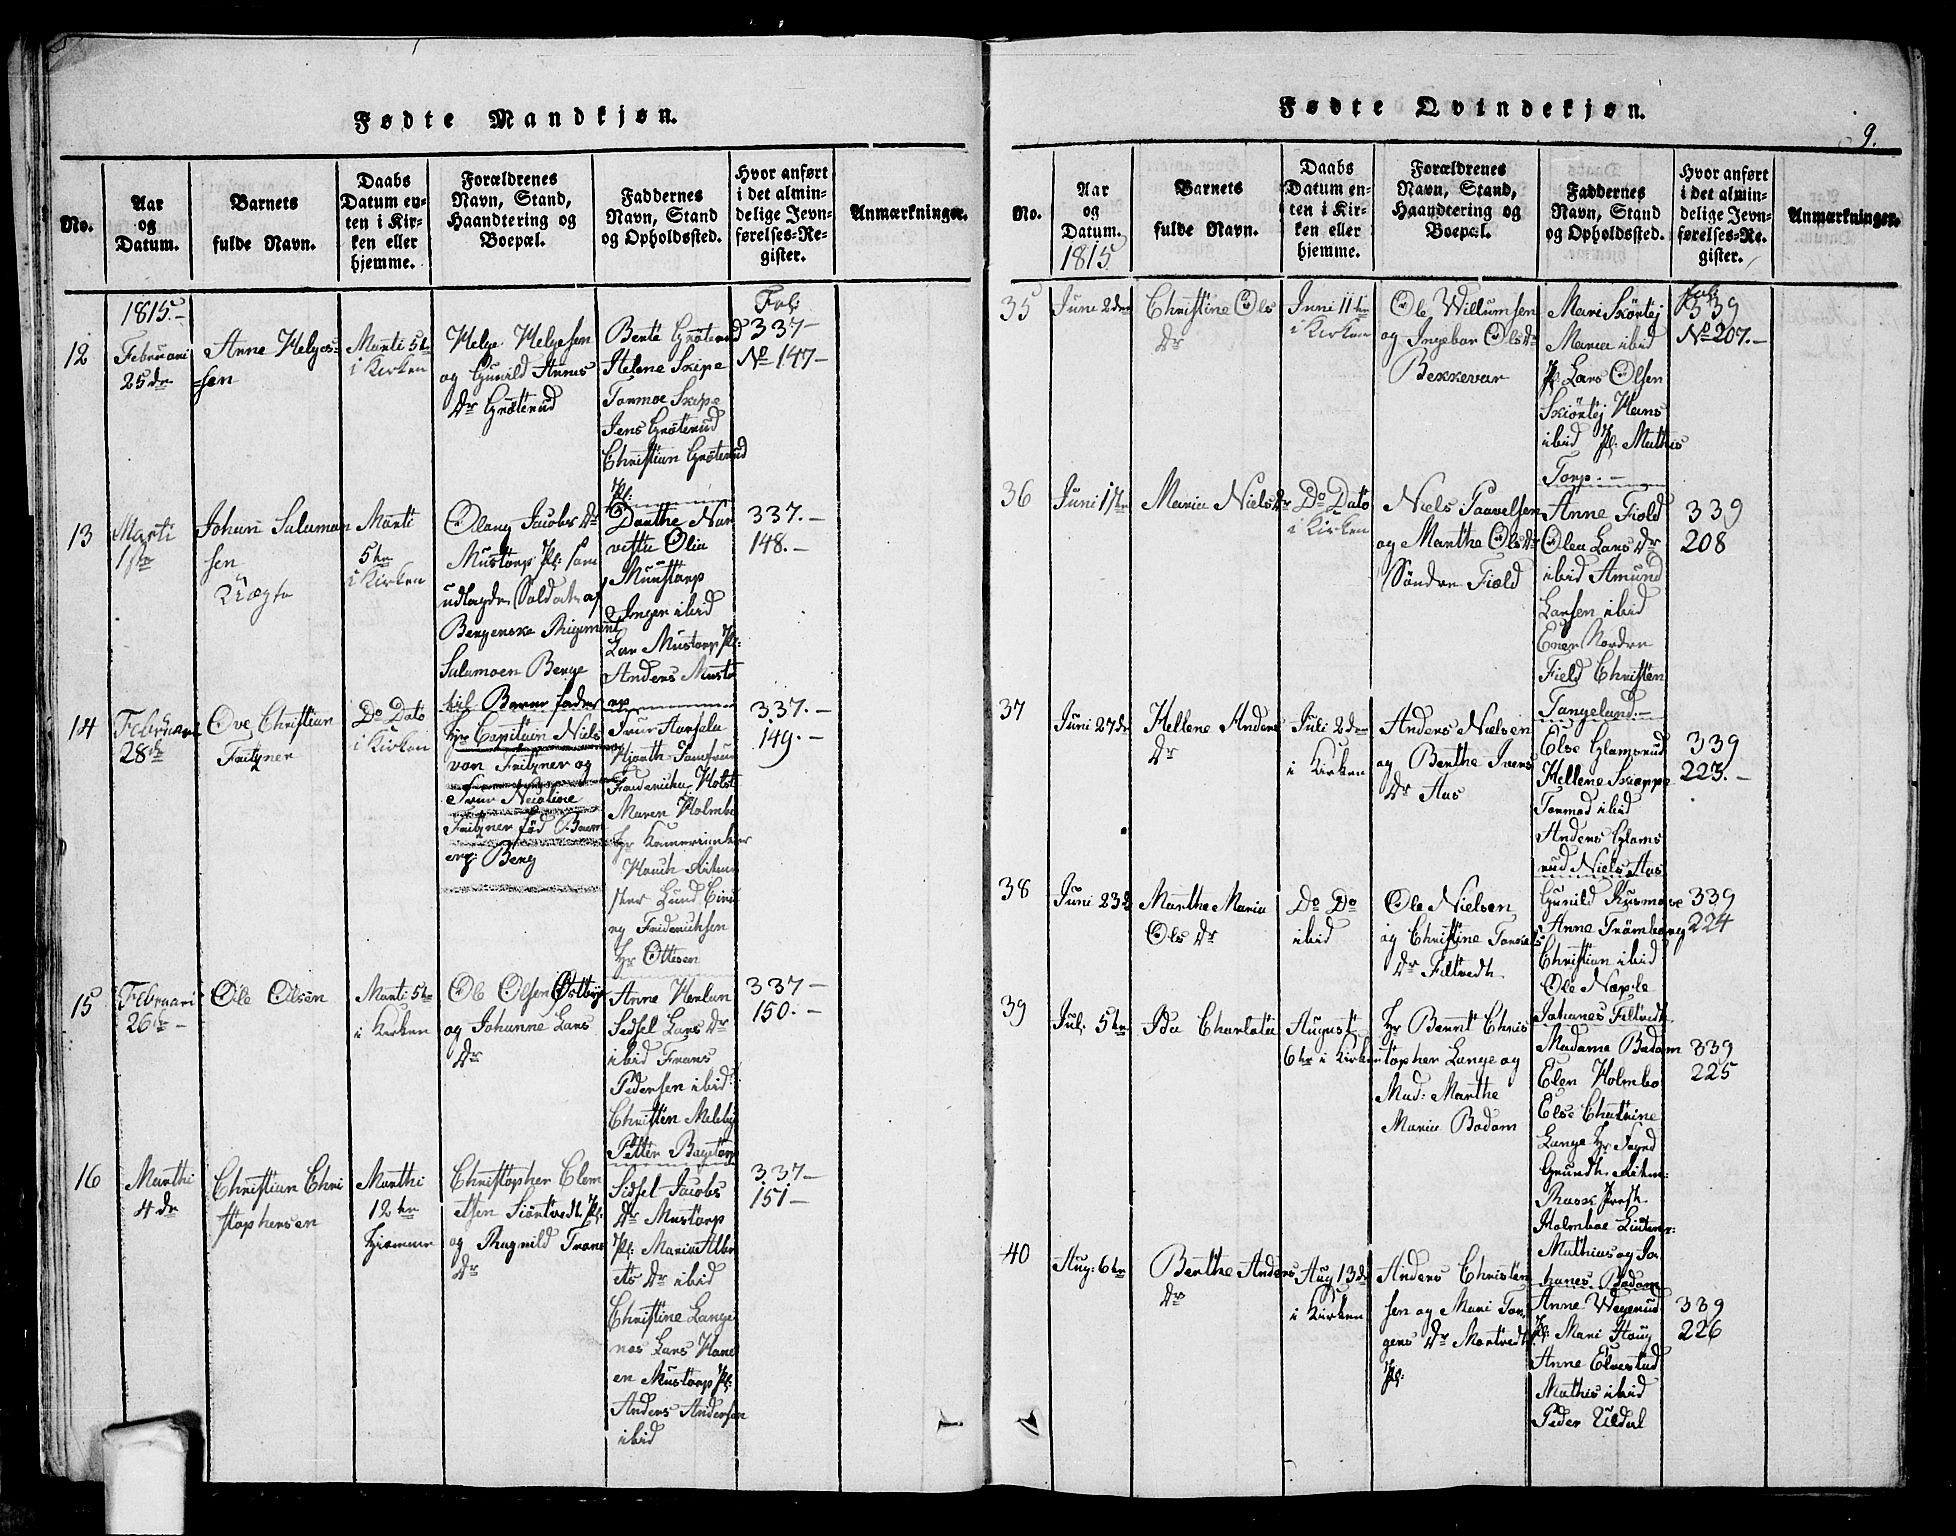 Fødte Mandkjøn.
No.
Aar
og
Datum.
Barnets
fulde Navn.
Daabs
Datum en-
ten i Kir-
ken eller
hjemme.
Forældrenes
Navn, Stand,
Haandtering og
Boepæl.
Faddernes
Navn, Stand
og Opholdssted.
Hvor anført
i det almin-
delige Jevn-
førelses-Re-
gister.
Anmærkninger.
1815.-
12
Februari
25de
Anne Helges-
=sen
Marti 5te
i Kirken
Helge Helgesen
og Gunild Annes
Dr Gröterud
Bente Gröterud
Helene Skipe
Tormoe Skipe
Jens Gröterud
Christian Gröterud
Pl:
Fol:
337-
No 147-
13
Marti
1ste
Johan Saluman
sen
Uægte
Marti
5te
i Kirken
Olaug Jacobs Dr
Mustorp Pl: som
udlagde Soldat af
Bergenske Regiment
Salamoen Berge
til Barne fader
Dorthe Nar
vestu Olia
Munstorp
Inger ibid
Lars Mustorp Pl:
Anders Musto
rp
337.-
148.-
14
Februari
28de
Ove Christian
Fritzner
Do Dato
i Kirken
Hr Capitain Niels
von Fritzner og
Frue Nicoline
Fritzner föd Baum
Berg
Frue
Hjorth Jomfrue
Fridericha Holst
Maren Holmbo
Hr Kammerjunker
Hauch Ritm
ster Lund
Friderichsen
Hr Ottesen
337.-
149.-
15
Februari
26de -
Ole Olsen
Marti 5te
i Kirken
Ole Olsen Östbye
og Johanne Lars
Dr
Anne Herlan
Sidsel Lars Dr
ibid Frans
Pedersen ibid
Christen Meleby
Petter Bagstorp
337-
150.-
16
Marthi
4de
Christian Chri
stophersen
Marthi
12te
Hjemme
Christopher Clem
etsen Siöntvedt Pl:
og Ragnild Frans
Dr
Sidsel Jacobs
Dr Mustorp
Pl: Maria Albr
ets Dr ibid
Christine Lange
nos Lars Hans
en Mustorp Pl:
Anders Andersen
ibid
337-
151-
Fødte Qvindekjøn.
9.
No.
Aar
og
Datum.
1815
Barnets
fulde Navn.
Daabs
Datum en-
ten i Kir-
ken eller
hjemme.
Forældrenes
Navn, Stand,
Haandtering og
Boepæl.
Faddernes
Navn, Stand
og Opholdssted.
Hvor anført
i det almin-
delige Jevn-
førelses-Re-
gister.
Anmærkninger.
35
June 2den
Christine Ols
Dr
Juni 11te
i Kirken
Ole Willumsen
og Ingebor Ols Dr
Bekkevar
Mari Skörtej
Maria ibid
Pl Lars Olsen
Skiörtej Hans
ibid Pl: Mathis
Torp.-
Fol:
339
No 207.-
36
Juni 1ste
Maria Niels Dr
Do Dato
i Kirken
Niels Paavelsen
og Marthe Ols Dr
Söndre Fiold
Anne Fiold
Olea Lars Dr
ibid Amund
Larsen ibid
Ener Nordre
Field Christen
Tangelund.-
339
208
37
Juni 27de
Hellene Anders
Dr
Juli 2den
i Kirken
Anders Nielsen
og Berthe Ivers
Dr Aas
Else Glamsrud
Hellene Skieppe
Tormod ibid
Anders Glams
rud Niels Aas
339
223.-
38
Juni 23de
Marthe Maria
Ols Dr
Do Do
ibid
Ole Nielsen
og Christine Torkels
Dr Filtvedt
Gunild Kusmose
Anne Trömborg
Christian ibid
Ole Næple
Johanes Filtvedt
339
224
39
Jul. 5te
Ida Charlota
August
6te i Kirken
Hr Bernt Chris
topher Lange og
Mad: Marthe
Maria Badam
Madame Badam
Elen Holmbo
Else Chatrine
Lange Hr Fogd
Grundt Ritm:
Rask Prest
Holmboe Lieuten:
Mathias og Jo
hanes Badam
339
225
40
Aug: 6te
Berthe Anders
Dr
Aug 13de
i Kirken
Anders Christen
sen og Mari Tor
gers Dr Mortvedt
Pl:
Anne Wegerud
Pl: Mari Houg
Anne Elvestad
Mathis ibid
Peder Uldal
339
226